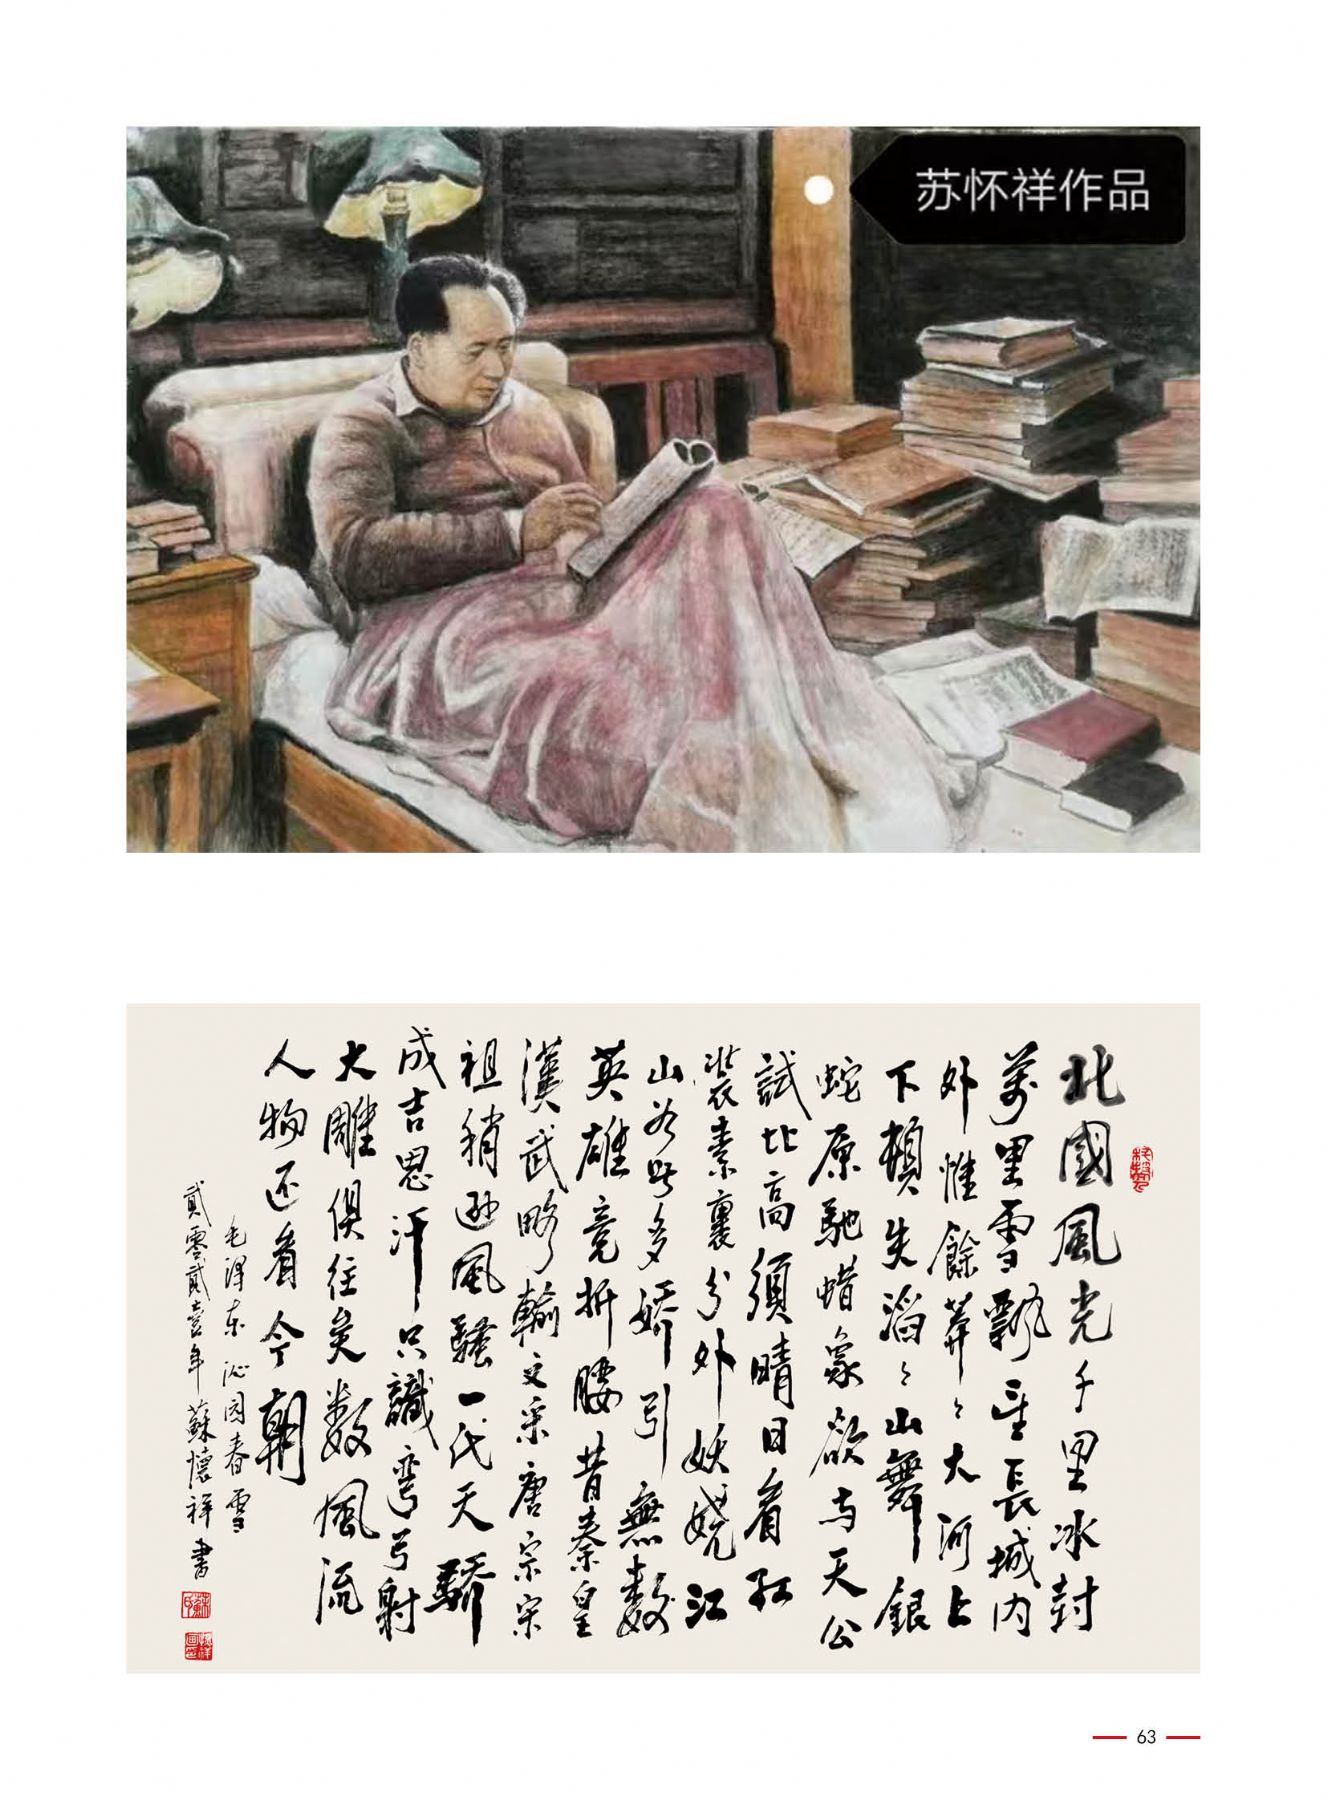 苏怀祥作品
北國風光千里冰封
萬里雪飘望長城内
外惟餘莽〻大河上
下頓失滔〻山舞銀
蛇原馳蜡象欲与天公
試比高須晴日看红
裝素裹分外妖娆江
山如此多娇引無數
英雄竞折腰昔秦皇
漢武略輸文采唐宗宋
祖稍逊風騷一代天驕
成吉思汗只識弯弓射
大雕俱往矣数風流
人物还看今朝
毛泽东沁园春雪
貳零貳壹年蘇懷祥書
63